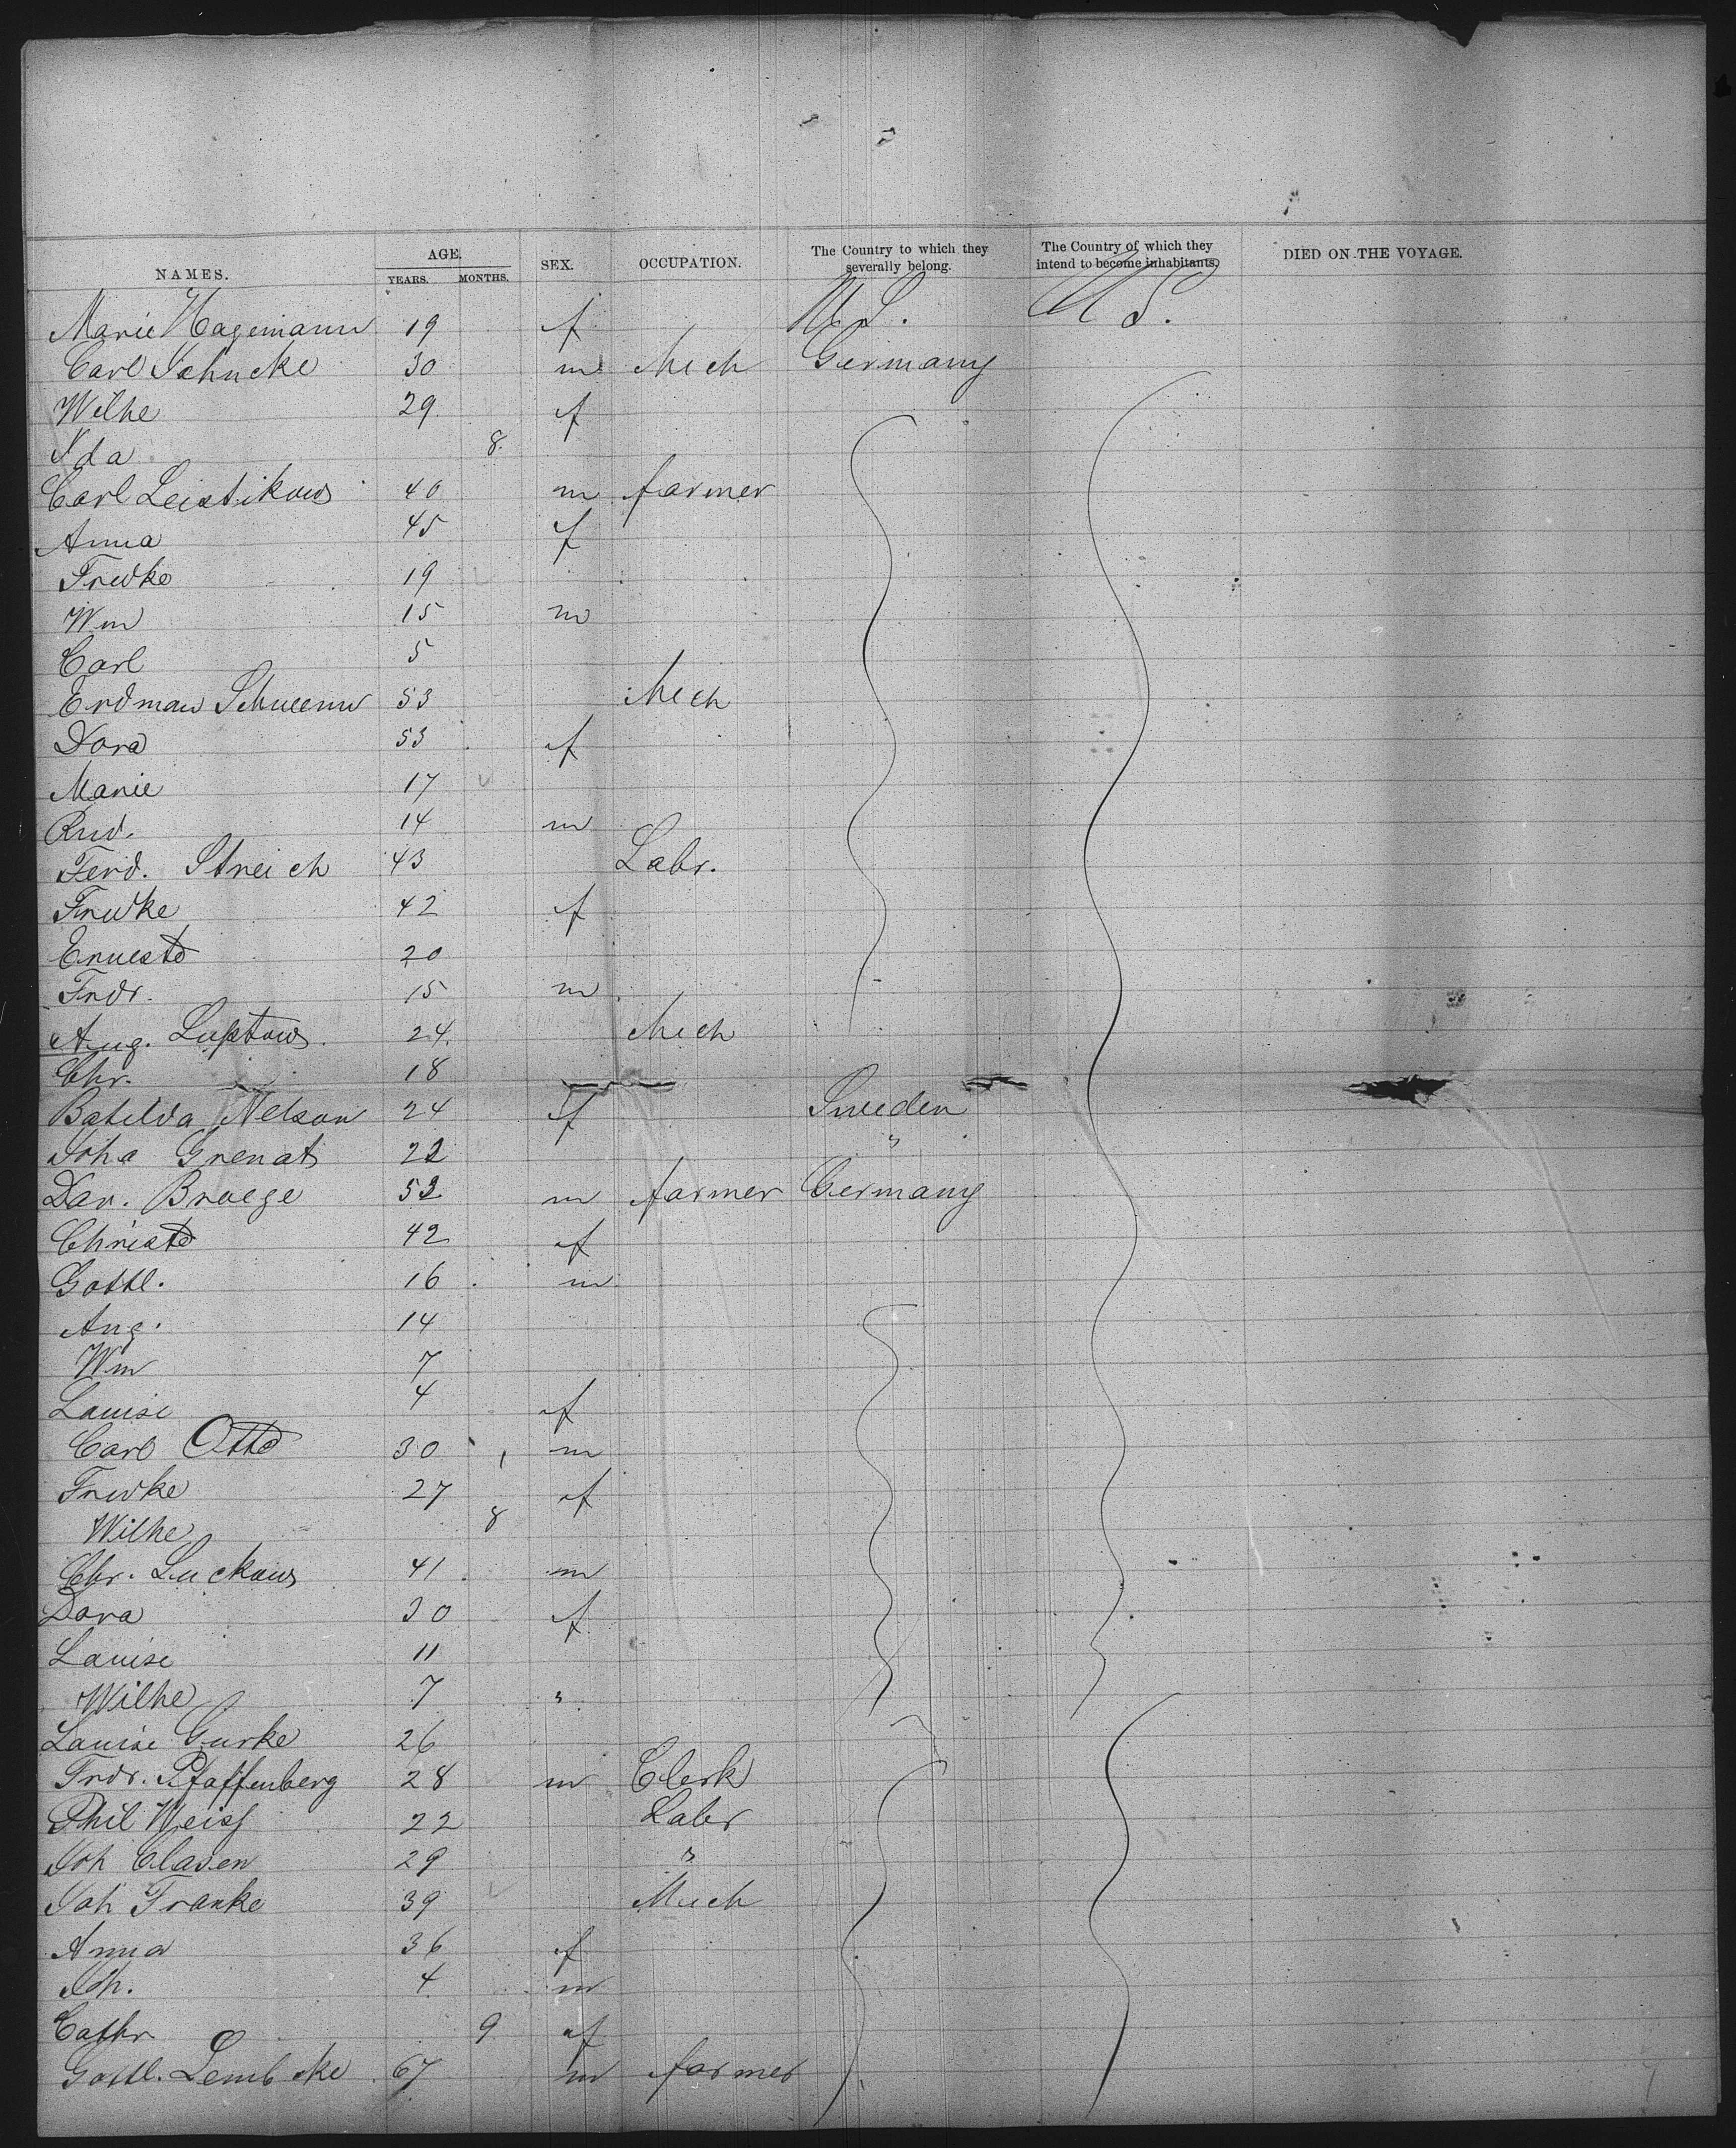 NAMES. AGE. YEARS. MONTHS. SEX. OCCUPATION. The Country to which they severally belong. The Country of which they intend to become inhabitants. DIED ON THE VOYAGE.
Marie Hagemann 19 f U.S. U S.
Carl 30 m Mech Germany
Wilhe 29 f
Ida 8
Carl Leistikow 40 m farmer
Anna 45 f
Fredke 19
Wm 15 m
Carl 5
Erdman 53 Mech
Dora 53 f
Marie 17
Rud. 14 m
Ferd. Streich 43 Labr.
Fredke 42 f
Ernest 20
Fridr. 15 m
Aug. Luptow 24 Mech
Chr. 18
Batilda Nelson 24 f Sweden
Joha Grenat 22 "
Dav. Broege 52 m farmer Germany
Christ 42 f
Gottl. 16 m
Aug. 14
Wm 7
Louise 4 f
Carl Otto 30 m
Fredke 27 f
Wilhe 8
Chr. Luckow 41 m
Dora 30 f
Louise 11
Wilhe 7 "
Louise Gurke 26
Frdr. Pfaffenberg 28 m Clerk
Phil Weiss 22 Labr
Joh Clasen 29 "
Joh Franke 39 Mech
Anna 36 f
Joh. 4 m
Cathr 9 f
Gottl. Lembcke 67 m farmer